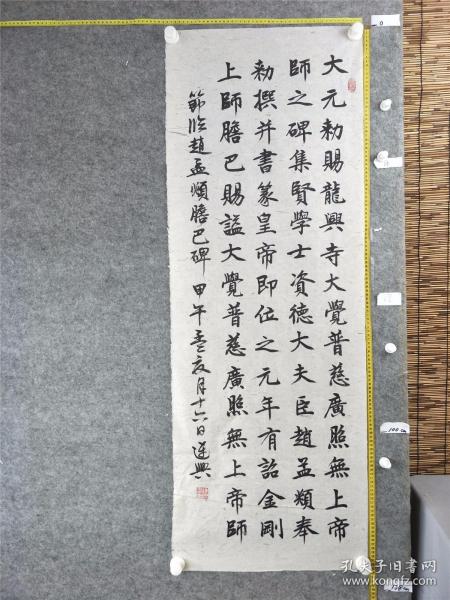 大元勅賜龍興寺大覺普慈廣照無上帝
師之碑集賢學士資德大夫臣趙孟頫奉
勅撰并書篆皇帝即位之元年有詔金剛
上師膽巴賜謚大覺普慈廣照無上帝師
節临趙孟頫膽巴碑 甲午 月十六日 興
0
100 cm
孔夫子旧书网
www.kongfz.com